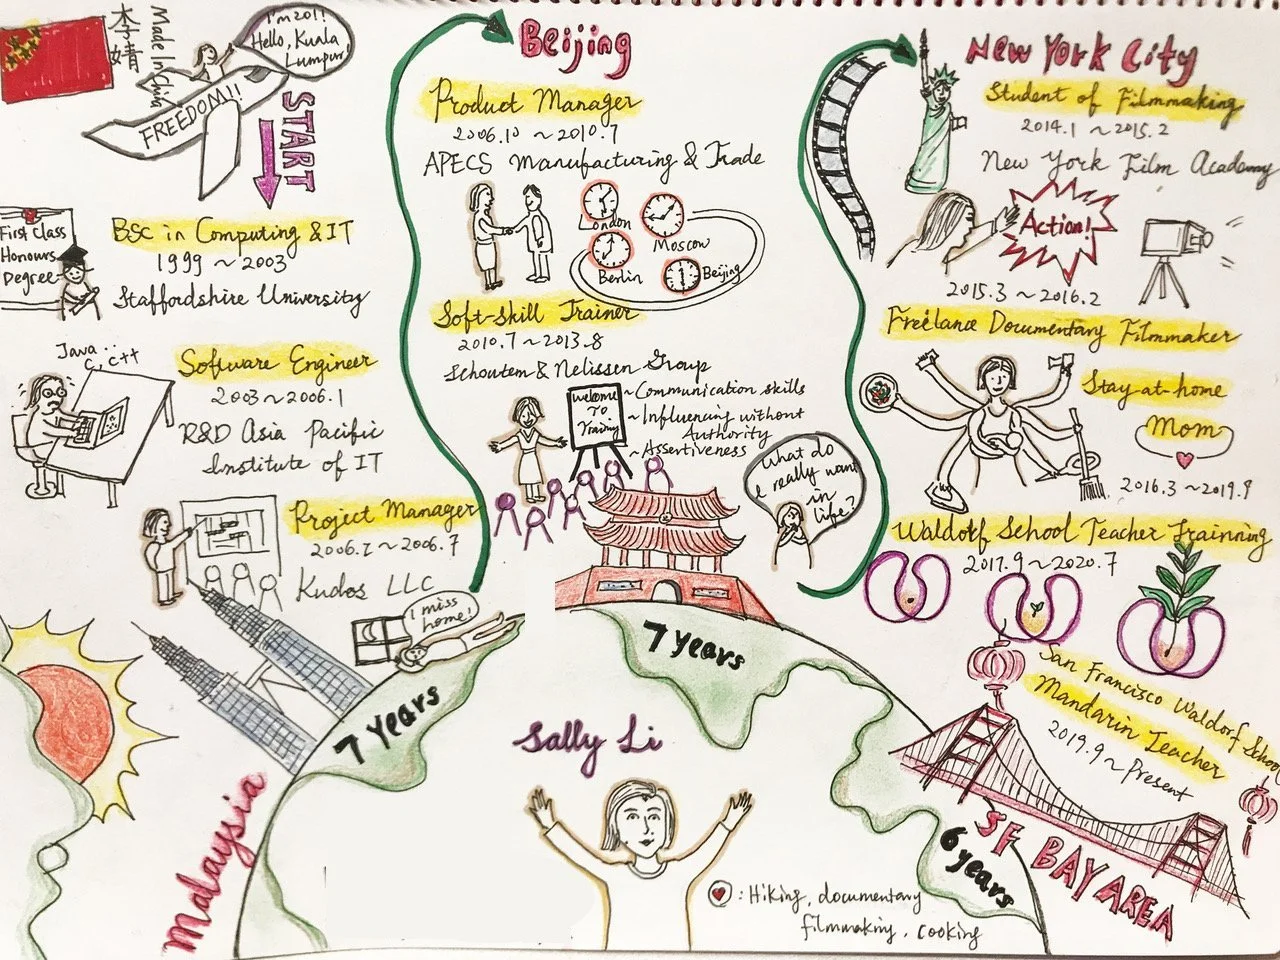 李婧
Made In China
I'm 20!
Hello, Kuala
Lumpur!
FREEDOM!!
START
First Class
Honours
Degree
BSc in Computing & IT
1999 ~ 2003
Staffordshire University
Java..
C, C++
Software Engineer
2003 ~ 2006.1
R&D Asia Pacific
Institute of IT
Project Manager
2006.1 ~ 2006.7
Kudos LLC
I miss
home!
7 Years
Malaysia
Beijing
Product Manager
2006.10 ~ 2010.7
APECS Manufacturing & Trade
London
Moscow
Berlin
Beijing
Soft-Skill Trainer
2010.7 ~ 2013.8
Schoutem & Nelissen Group
Welcome
To
Training
~ Communication skills
~ Influencing without
Authority
~ Assertiveness
What do
I really want
in
life?
7 Years
Sally Li
: Hiking, documentary
filmmaking, cooking
New York City
Student of Filmmaking
2014.1 ~ 2015.2
New York Film Academy
Action!
2015.3 ~ 2016.2
Freelance Documentary Filmmaker
Stay-at-home
Mom
2016.3 ~ 2019.9
Waldorf School Teacher Trainning
2017.9 ~ 2020.7
San Francisco Waldorf School
Mandarin Teacher
2019.9 ~ Present
SF BAY AREA
6 years